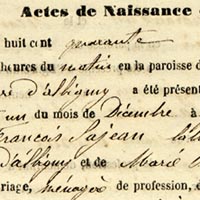 Actes de Naissance
huit cent quarante
heures du matin en la paroisse d
d'albigny a été présent
un du mois de Décembre à
François Pajean
d'albigny et de Marie
riage, ménagère de profession, d